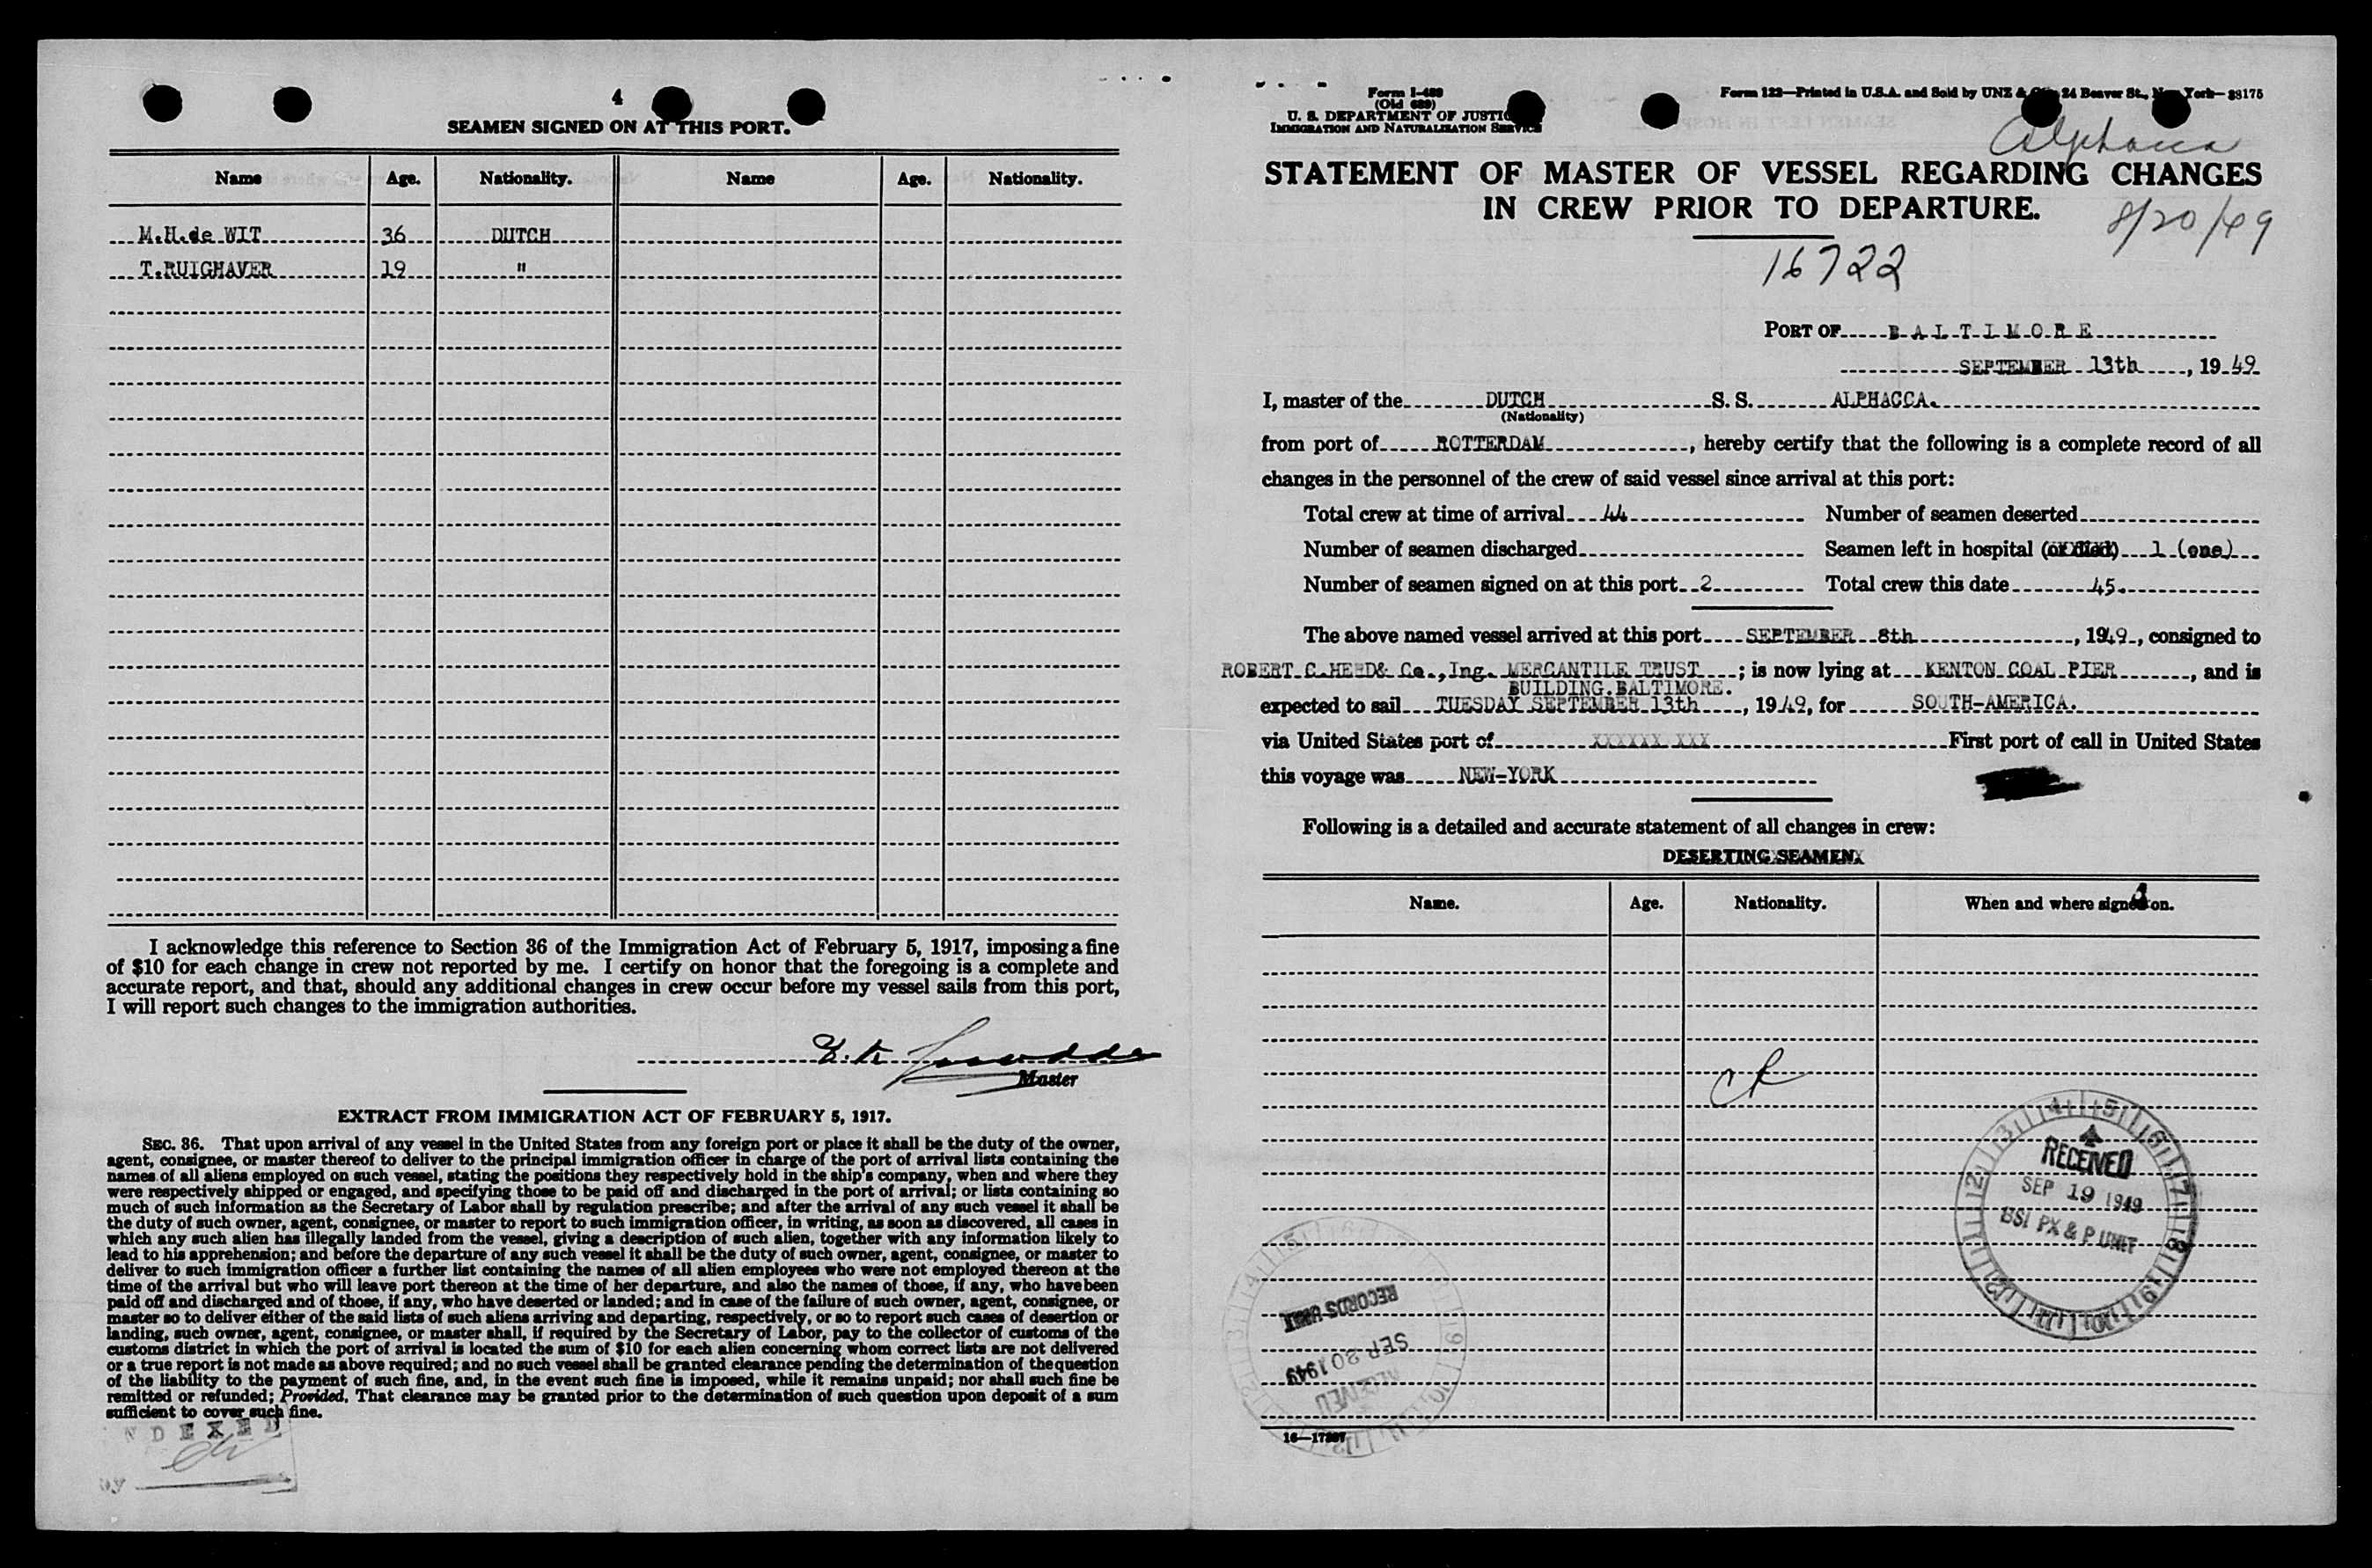 4
SEAMEN SIGNED ON AT THIS PORT.
Name Age. Nationality. Name Age. Nationality.
M.H.de WIT 36 DUTCH
T.RUIGHAVER 19 "
I acknowledge this reference to Section 36 of the Immigration Act of February 5, 1917, imposing a fine
of $10 for each change in crew not reported by me. I certify on honor that the foregoing is a complete and
accurate report, and that, should any additional changes in crew occur before my vessel sails from this port,
I will report such changes to the immigration authorities.
Master
EXTRACT FROM IMMIGRATION ACT OF FEBRUARY 5, 1917.
SEC. 36. That upon arrival of any vessel in the United States from any foreign port or place it shall be the duty of the owner,
agent, consignee, or master thereof to deliver to the principal immigration officer in charge of the port of arrival lists containing the
names of all aliens employed on such vessel, stating the positions they respectively hold in the ship's company, when and where they
were respectively shipped or engaged, and specifying those to be paid off and discharged in the port of arrival; or lists containing so
much of such information as the Secretary of Labor shall by regulation prescribe; and after the arrival of any such vessel it shall be
the duty of such owner, agent, consignee, or master to report to such immigration officer, in writing, as soon as discovered, all cases in
which any such alien has illegally landed from the vessel, giving a description of such alien, together with any information likely to
lead to his apprehension; and before the departure of any such vessel it shall be the duty of such owner, agent, consignee, or master to
deliver to such immigration officer a further list containing the names of all alien employees who were not employed thereon at the
time of the arrival but who will leave port thereon at the time of her departure, and also the names of those, if any, who have been
paid off and discharged and of those, if any, who have deserted or landed; and in case of the failure of such owner, agent, consignee, or
master so to deliver either of the said lists of such aliens arriving and departing, respectively, or so to report such cases of desertion or
landing, such owner, agent, consignee, or master shall, if required by the Secretary of Labor, pay to the collector of customs of the
customs district in which the port of arrival is located the sum of $10 for each alien concerning whom correct lists are not delivered
or a true report is not made as above required; and no such vessel shall be granted clearance pending the determination of the question
of the liability to the payment of such fine, and, in the event such fine is imposed, while it remains unpaid; nor shall such fine be
remitted or refunded; Provided, That clearance may be granted prior to the determination of such question upon deposit of a sum
sufficient to cover such fine.
NDEXED
BY
Form I-489
(Old 689)
U. S. DEPARTMENT OF JUSTICE
IMMIGRATION AND NATURALIZATION SERVICE
Form 122—Printed in U.S.A. and Sold by UNZ & Co., 24 Beaver St., New York—38175
Alphacca
STATEMENT OF MASTER OF VESSEL REGARDING CHANGES
IN CREW PRIOR TO DEPARTURE.
8/20/49
16722
PORT OF BALTIMORE
SEPTEMBER 13th, 1949
I, master of the DUTCH S. S. ALPHACCA.
(Nationality)
from port of ROTTERDAM, hereby certify that the following is a complete record of all
changes in the personnel of the crew of said vessel since arrival at this port:
Total crew at time of arrival 44 Number of seamen deserted
Number of seamen discharged Seamen left in hospital (or died) 1 (one)
Number of seamen signed on at this port 2 Total crew this date 45.
The above named vessel arrived at this port SEPTEMBER 8th, 1949, consigned to
ROBERT C.HERD& Co.,Ing. MERCANTILE TRUST; is now lying at KENTON COAL PIER, and is
BUILDING.BALTIMORE.
expected to sail TUESDAY SEPTEMBER 13th, 1949, for SOUTH-AMERICA.
via United States port of XXXXXX XXX First port of call in United States
this voyage was NEW-YORK
Following is a detailed and accurate statement of all changes in crew:
DESERTING SEAMEN
Name. Age. Nationality. When and where signed on.
RECEIVED
SEP 19 1949
BSI PX & P UNIT
RECEIVED
SEP 20 1949
RECORDS UNIT